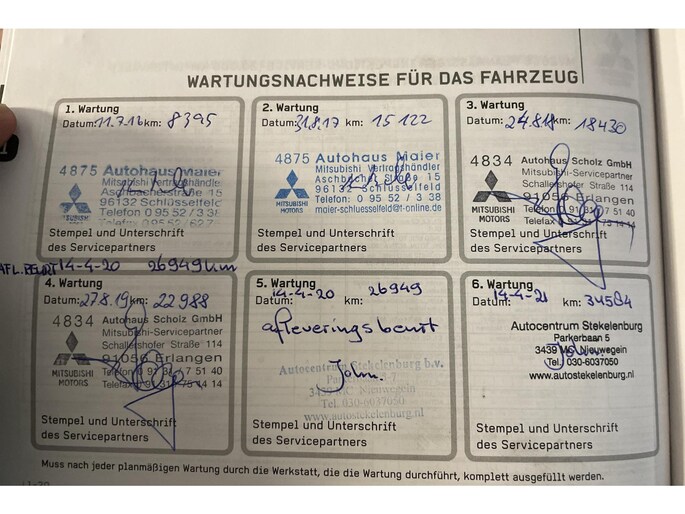 WARTUNGSNACHWEISE FÜR DAS FAHRZEUG
1. Wartung
Datum: 11.7.16 km: 8395
4875 Autohaus Maier
Mitsubishi Vertragshändler
Aschbacherstraße 15
96132 Schlüsselfeld
Telefon 0 95 52 / 3 38
MITSUBISHI
MOTORS
Stempel und Unterschrift
des Servicepartners
2. Wartung
Datum: 31.8.17 km: 15122
4875 Autohaus Maier
Mitsubishi Vertragshändler
Aschbacher Straße 15
96132 Schlüsselfeld
Telefon: 0 95 52 / 3 38
maier-schluesselfeld@t-online.de
MITSUBISHI
MOTORS
Stempel und Unterschrift
des Servicepartners
3. Wartung
Datum: 24.8.18 km: 18430
4834 Autohaus Scholz GmbH
Mitsubishi-Servicepartner
Schallershofer Straße 114
91056 Erlangen
Telefon 0 91 31 / 7 51 40
MITSUBISHI
MOTORS
Stempel und Unterschrift
des Servicepartners
AFL.BEURT 14-4-20 26949 km
4. Wartung
Datum: 27.8.19 km: 22988
4834 Autohaus Scholz GmbH
Mitsubishi-Servicepartner
Schallershofer Straße 114
91056 Erlangen
Telefon 0 91 31 / 7 51 40
MITSUBISHI
MOTORS
Stempel und Unterschrift
des Servicepartners
5. Wartung
Datum: 14-4-20 km: 26949
afleveringsbeurt
Autocentrum Stekelenburg b.v.
John.
3439 MC Nieuwegein
Tel. 030-6037050
www.autostekelenburg.nl
Stempel und Unterschrift
des Servicepartners
6. Wartung
Datum: 14-4-21 km: 34584
Autocentrum Stekelenburg
Parkerbaan 5
3439 MC Nieuwegein
John.
Tel. 030-6037050
www.autostekelenburg.nl
Stempel und Unterschrift
des Servicepartners
Muss nach jeder planmäßigen Wartung durch die Werkstatt, die die Wartung durchführt, komplett ausgefüllt werden.